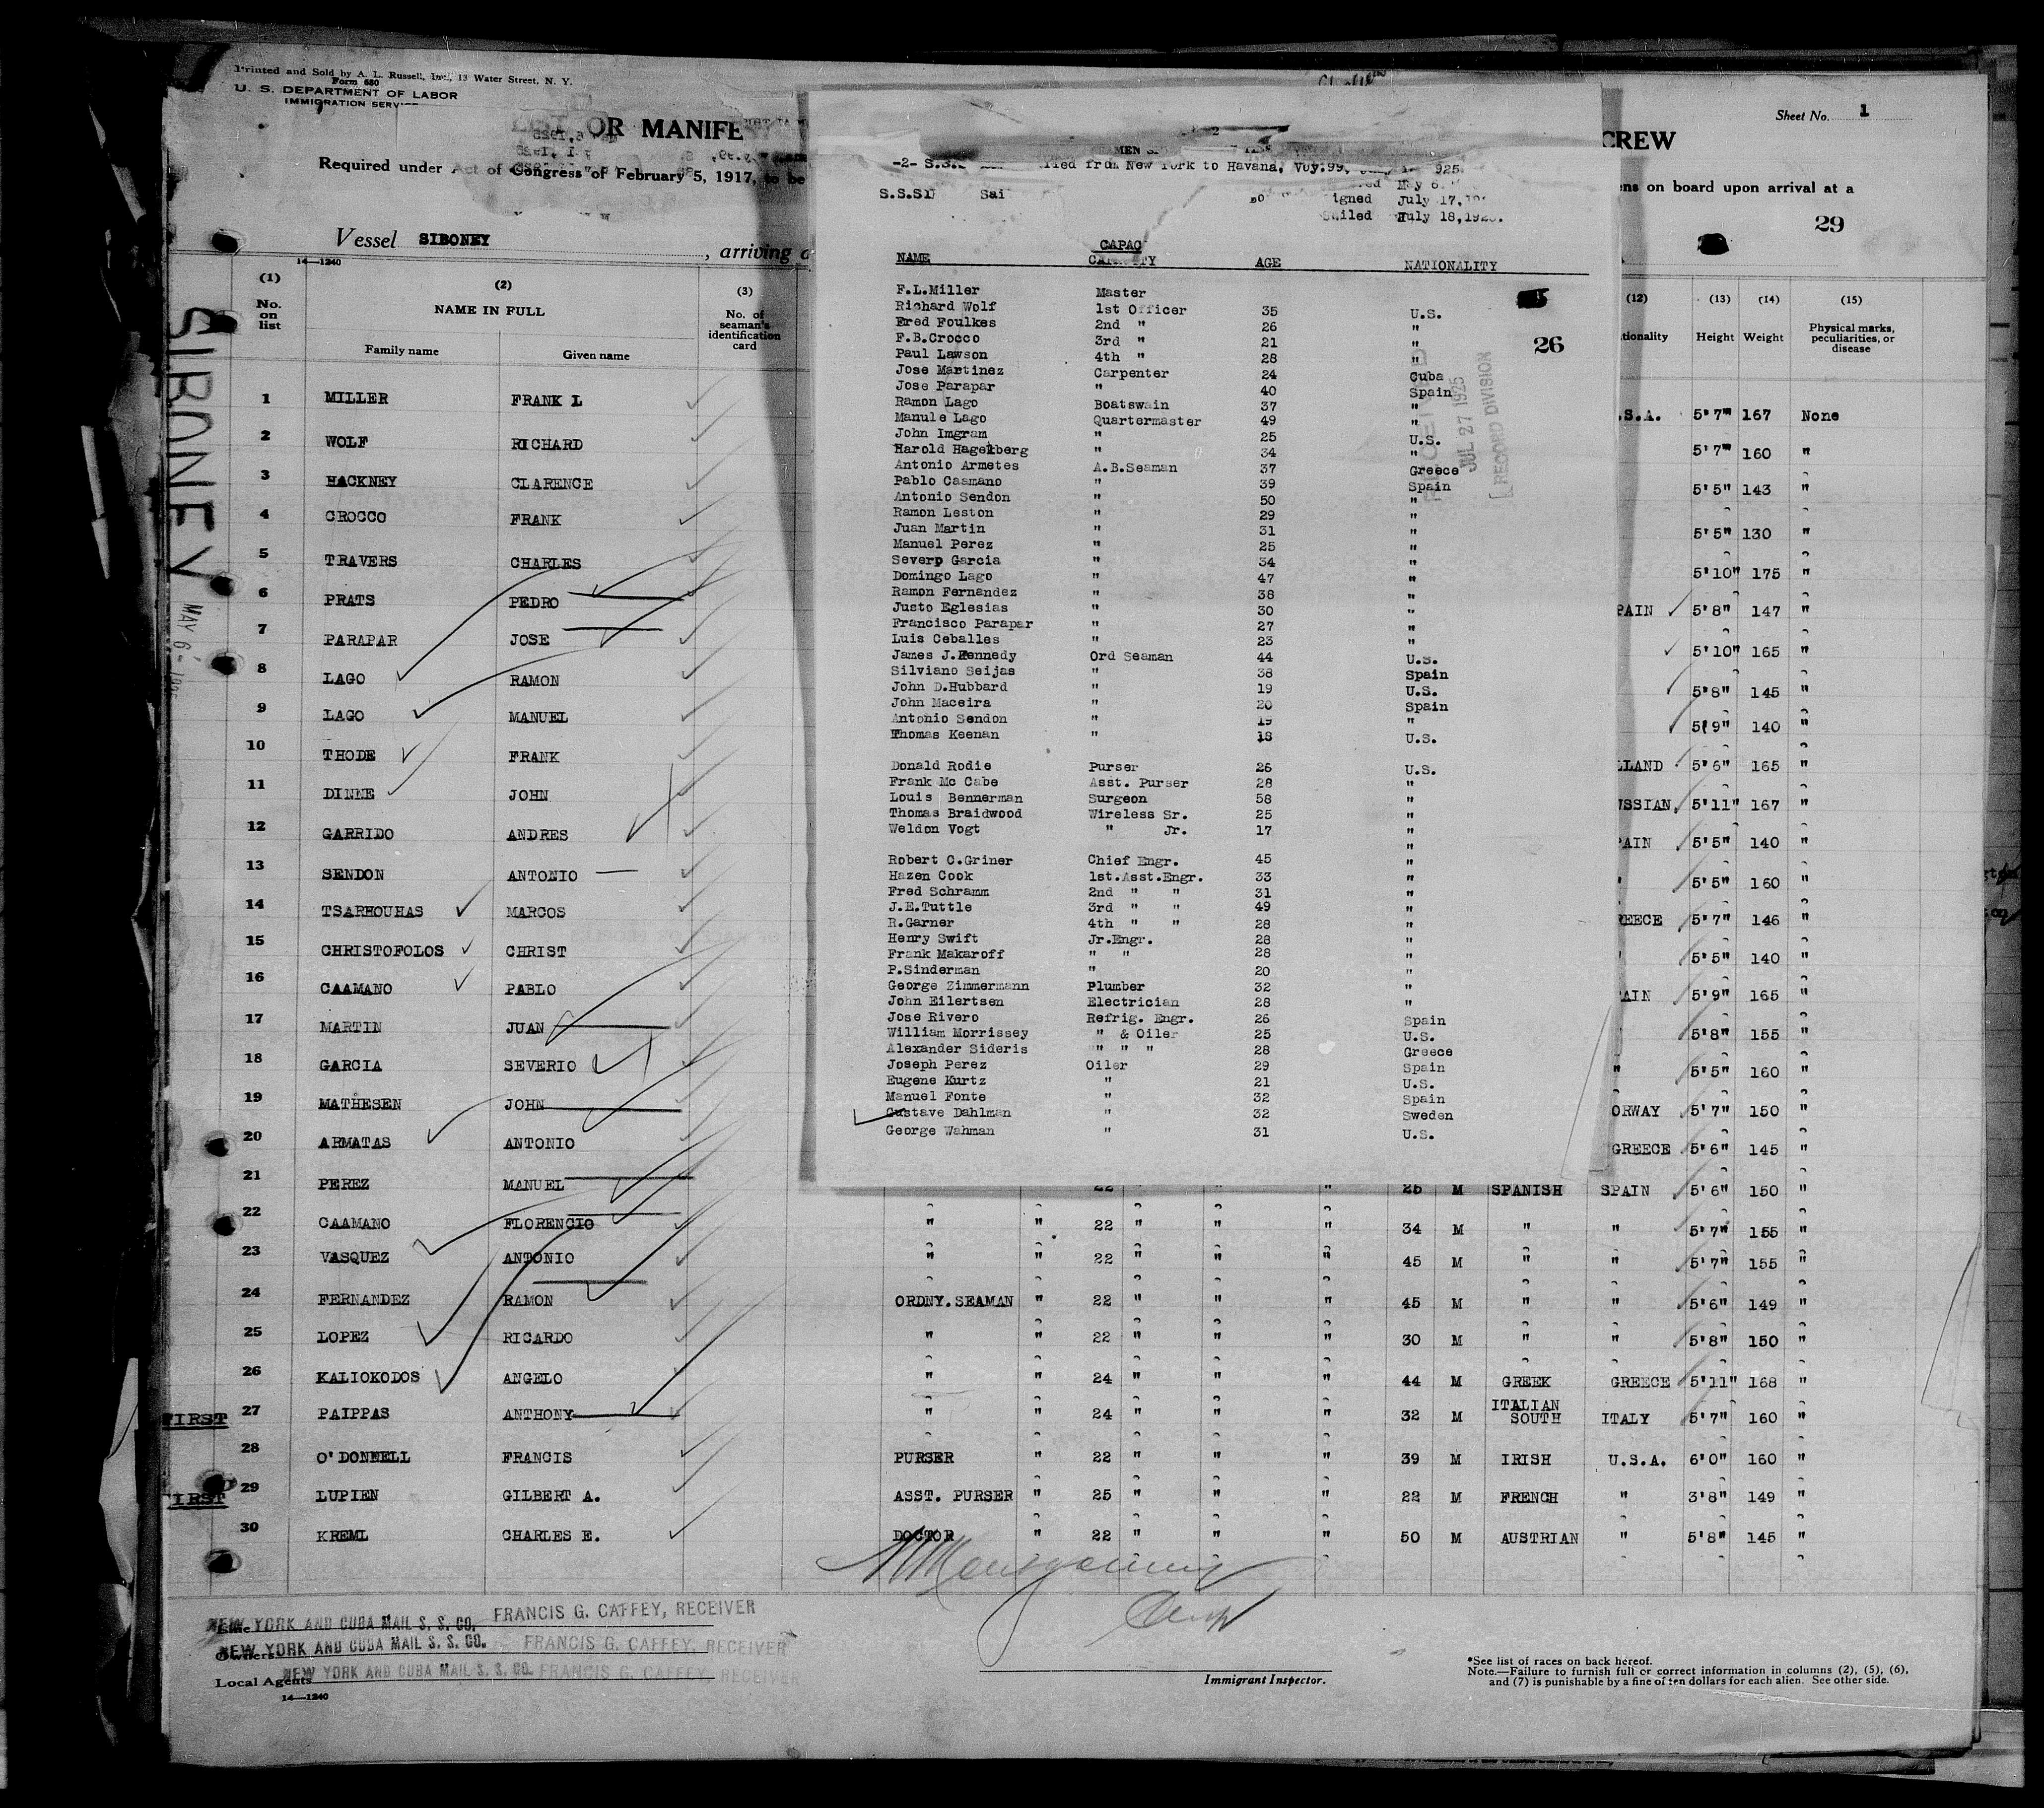 Printed and Sold by A. L. Russell, Inc., 13 Water Street, N. Y.
Form 680
U. S. DEPARTMENT OF LABOR
IMMIGRATION SERVICE
Sheet No. 1
OR MANIFE
CREW
Required under Act of Congress of February 5, 1917, to be
ens on board upon arrival at a
29
Vessel SIBONEY , arriving a
14—1240
SIBONEY
MAY 6
(1) No. on list
(2) NAME IN FULL
Family name Given name
(3) No. of seaman's identification card
(12) tionality
(13) Height
(14) Weight
(15) Physical marks, peculiarities, or disease
1 MILLER FRANK L .S.A. 5'7" 167 None
2 WOLF RICHARD 5'7" 160 "
3 HACKNEY CLARENCE 5'5" 143 "
4 CROCCO FRANK 5'5" 130 "
5 TRAVERS CHARLES 5'10" 175 "
6 PRATS PEDRO PAIN 5'8" 147 "
7 PARAPAR JOSE 5'10" 165 "
8 LAGO RAMON 5'8" 145 "
9 LAGO MANUEL 5'9" 140 "
10 THODE FRANK LLAND 5'6" 165 "
11 DINNE JOHN USSIAN 5'11" 167 "
12 GARRIDO ANDRES PAIN 5'5" 140 "
13 SENDON ANTONIO " 5'5" 160 "
14 TSARHOUHAS MARCOS REECE 5'7" 146 "
15 CHRISTOFOLOS CHRIST " 5'5" 140 "
16 CAAMANO PABLO AIN 5'9" 165 "
17 MARTIN JUAN " 5'8" 155 "
18 GARCIA SEVERIO " 5'5" 160 "
19 MATHESEN JOHN ORWAY 5'7" 150 "
20 ARMATAS ANTONIO GREECE 5'6" 145 "
21 PEREZ MANUEL 22 " " " 25 M SPANISH SPAIN 5'6" 150 "
22 CAAMANO FLORENCIO " " 22 " " " 34 M " " 5'7" 155 "
23 VASQUEZ ANTONIO " " 22 " " " 45 M " " 5'7" 155 "
24 FERNANDEZ RAMON ORDNY.SEAMAN " 22 " " " 45 M " " 5'6" 149 "
25 LOPEZ RICARDO " " 22 " " " 30 M " " 5'8" 150 "
26 KALIOKODOS ANGELO " " 24 " " " 44 M GREEK GREECE 5'11" 168 "
FIRST 27 PAIPPAS ANTHONY " " 24 " " " 32 M ITALIAN SOUTH ITALY 5'7" 160 "
28 O'DONNELL FRANCIS PURSER " 22 " " " 39 M IRISH U.S.A. 6'0" 160 "
FIRST 29 LUPIEN GILBERT A. ASST. PURSER " 25 " " " 22 M FRENCH " 3'8" 149 "
30 KREML CHARLES E. DOCTOR " 22 " " " 50 M AUSTRIAN " 5'8" 145 "
NEW YORK AND CUBA MAIL S. S. CO. FRANCIS G. CAFFEY, RECEIVER
Owners NEW YORK AND CUBA MAIL S. S. CO. FRANCIS G. CAFFEY, RECEIVER
Local Agents NEW YORK AND CUBA MAIL S. S. CO. FRANCIS G. CAFFEY, RECEIVER
14—1240
Immigrant Inspector.
*See list of races on back hereof.
Note.—Failure to furnish full or correct information in columns (2), (5), (6),
and (7) is punishable by a fine of ten dollars for each alien. See other side.
-2- S.S. from New York to Havana, Voy.99, 925
May 6
S.S.SI Sai igned July 17,
Sailed July 18,192
CAPAC
NAME CAPACITY AGE NATIONALITY
26
RECEIVED
JUL 27 1925
RECORD DIVISION
F.L.Miller Master
Richard Wolf 1st Officer 35 U.S.
Fred Foulkes 2nd " 26 "
F.B.Crocco 3rd " 21 "
Paul Lawson 4th " 28 "
Jose Martinez Carpenter 24 Cuba
Jose Parapar " 40 Spain
Ramon Lago Boatswain 37 "
Manule Lago Quartermaster 49 "
John Imgram " 25 U.S.
Harold Hagelberg " 34 "
Antonio Armetes A.B.Seaman 37 Greece
Pablo Caamano " 39 Spain
Antonio Sendon " 50 "
Ramon Leston " 29 "
Juan Martin " 31 "
Manuel Perez " 25 "
Severp Garcia " 34 "
Domingo Lago " 47 "
Ramon Fernandez " 38 "
Justo Eglesias " 30 "
Francisco Parapar " 27 "
Luis Ceballes " 23 "
James J.Kennedy Ord Seaman 44 U.S.
Silviano Seijas " 38 Spain
John D.Hubbard " 19 U.S.
John Maceira " 20 Spain
Antonio Sendon " 19 "
Thomas Keenan " 18 U.S.
Donald Rodie Purser 26 U.S.
Frank Mc Cabe Asst. Purser 28 "
Louis Bennerman Surgeon 58 "
Thomas Braidwood Wireless Sr. 25 "
Weldon Vogt " Jr. 17 "
Robert C.Griner Chief Engr. 45 "
Hazen Cook 1st.Asst.Engr. 33 "
Fred Schramm 2nd " " 31 "
J.E.Tuttle 3rd " " 49 "
R.Garner 4th " 28 "
Henry Swift Jr.Engr. 28 "
Frank Makaroff " " 28 "
P.Sinderman " 20 "
George Zimmermann Plumber 32 "
John Eilertsen Electrician 28 "
Jose Rivero Refrig. Engr. 26 Spain
William Morrissey " & Oiler 25 U.S.
Alexander Sideris " " " 28 Greece
Joseph Perez Oiler 29 Spain
Eugene Kurtz " 21 U.S.
Manuel Fonte " 32 Spain
Gustave Dahlman " 32 Sweden
George Wahman " 31 U.S.